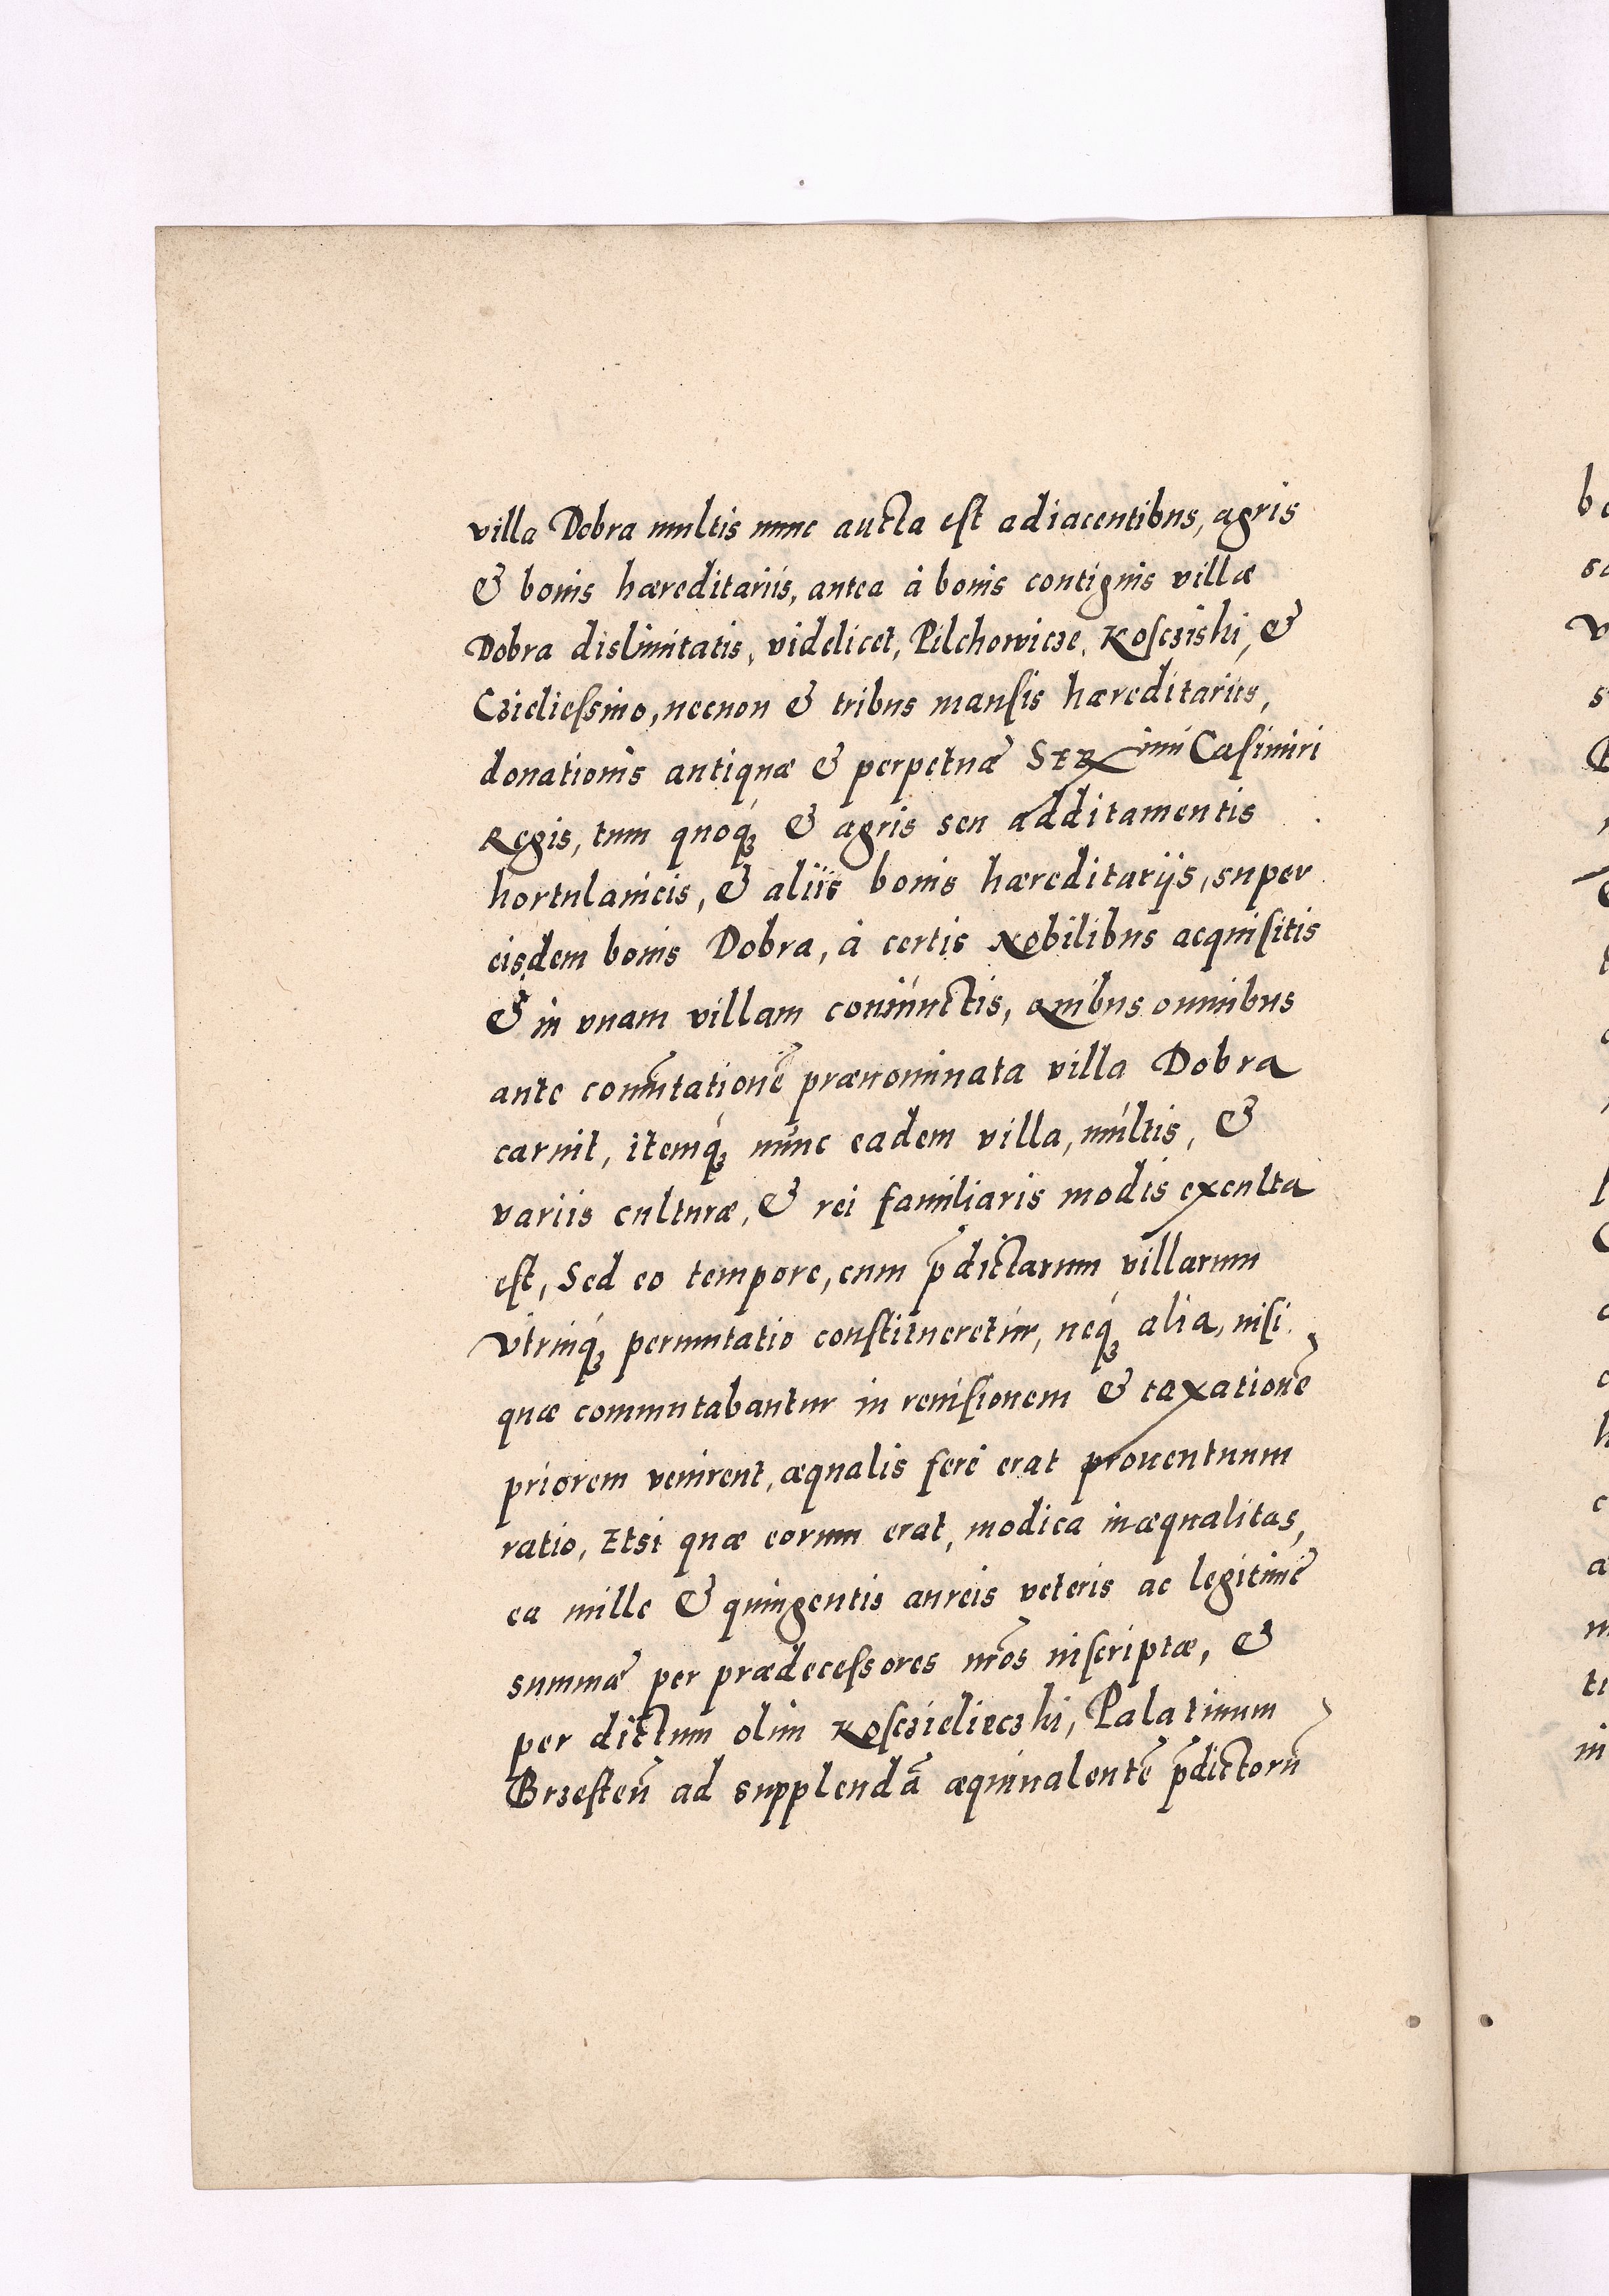 villa Dobra multis nunc aucta est adiacentibus, agris
& bonis hæreditariis, antea à bonis contiguis villæ
Dobra dislimitatis, videlicet, Pilchowicze, Kosczishi, &
Czieliessino, necnon & tribus mansis hæreditariis,
donationis antiquæ & perpetuæ SER imi Casimiri
Regis, tum quoq́ȝ & agris seu additamentis
hortulanicis, & aliis bonis hæreditarijs, super
eisdem bonis Dobra, à certis Nobilibus acquisitis
& in vnam villam coniunctis, quibus omnibus
ante comũtationẽ prænominata villa Dobra
caruit, itemq́ȝ nunc eadem villa, multis, &
variis culturæ, & rei familiaris modis exculta
est, Sed eo tempore, cum p̃dictarum villarum
vtrinq́ȝ permutatio constitueretur, neq́ȝ alia, nisi
quæ commutabantur in reuisionem & taxationẽ
priorem venirent, æqualis ferè erat prouentuum
ratio, Etsi quæ eorum erat, modica inæqualitas,
ea mille & quingentis aureis veteris ac legitimẽ
summæ per prædecessores nr̃os inscriptæ, &
per dictum olim Kosczielieczhi, Palatinum
Brzesteñ ad supplendã æquiualentẽ p̃dictorũ